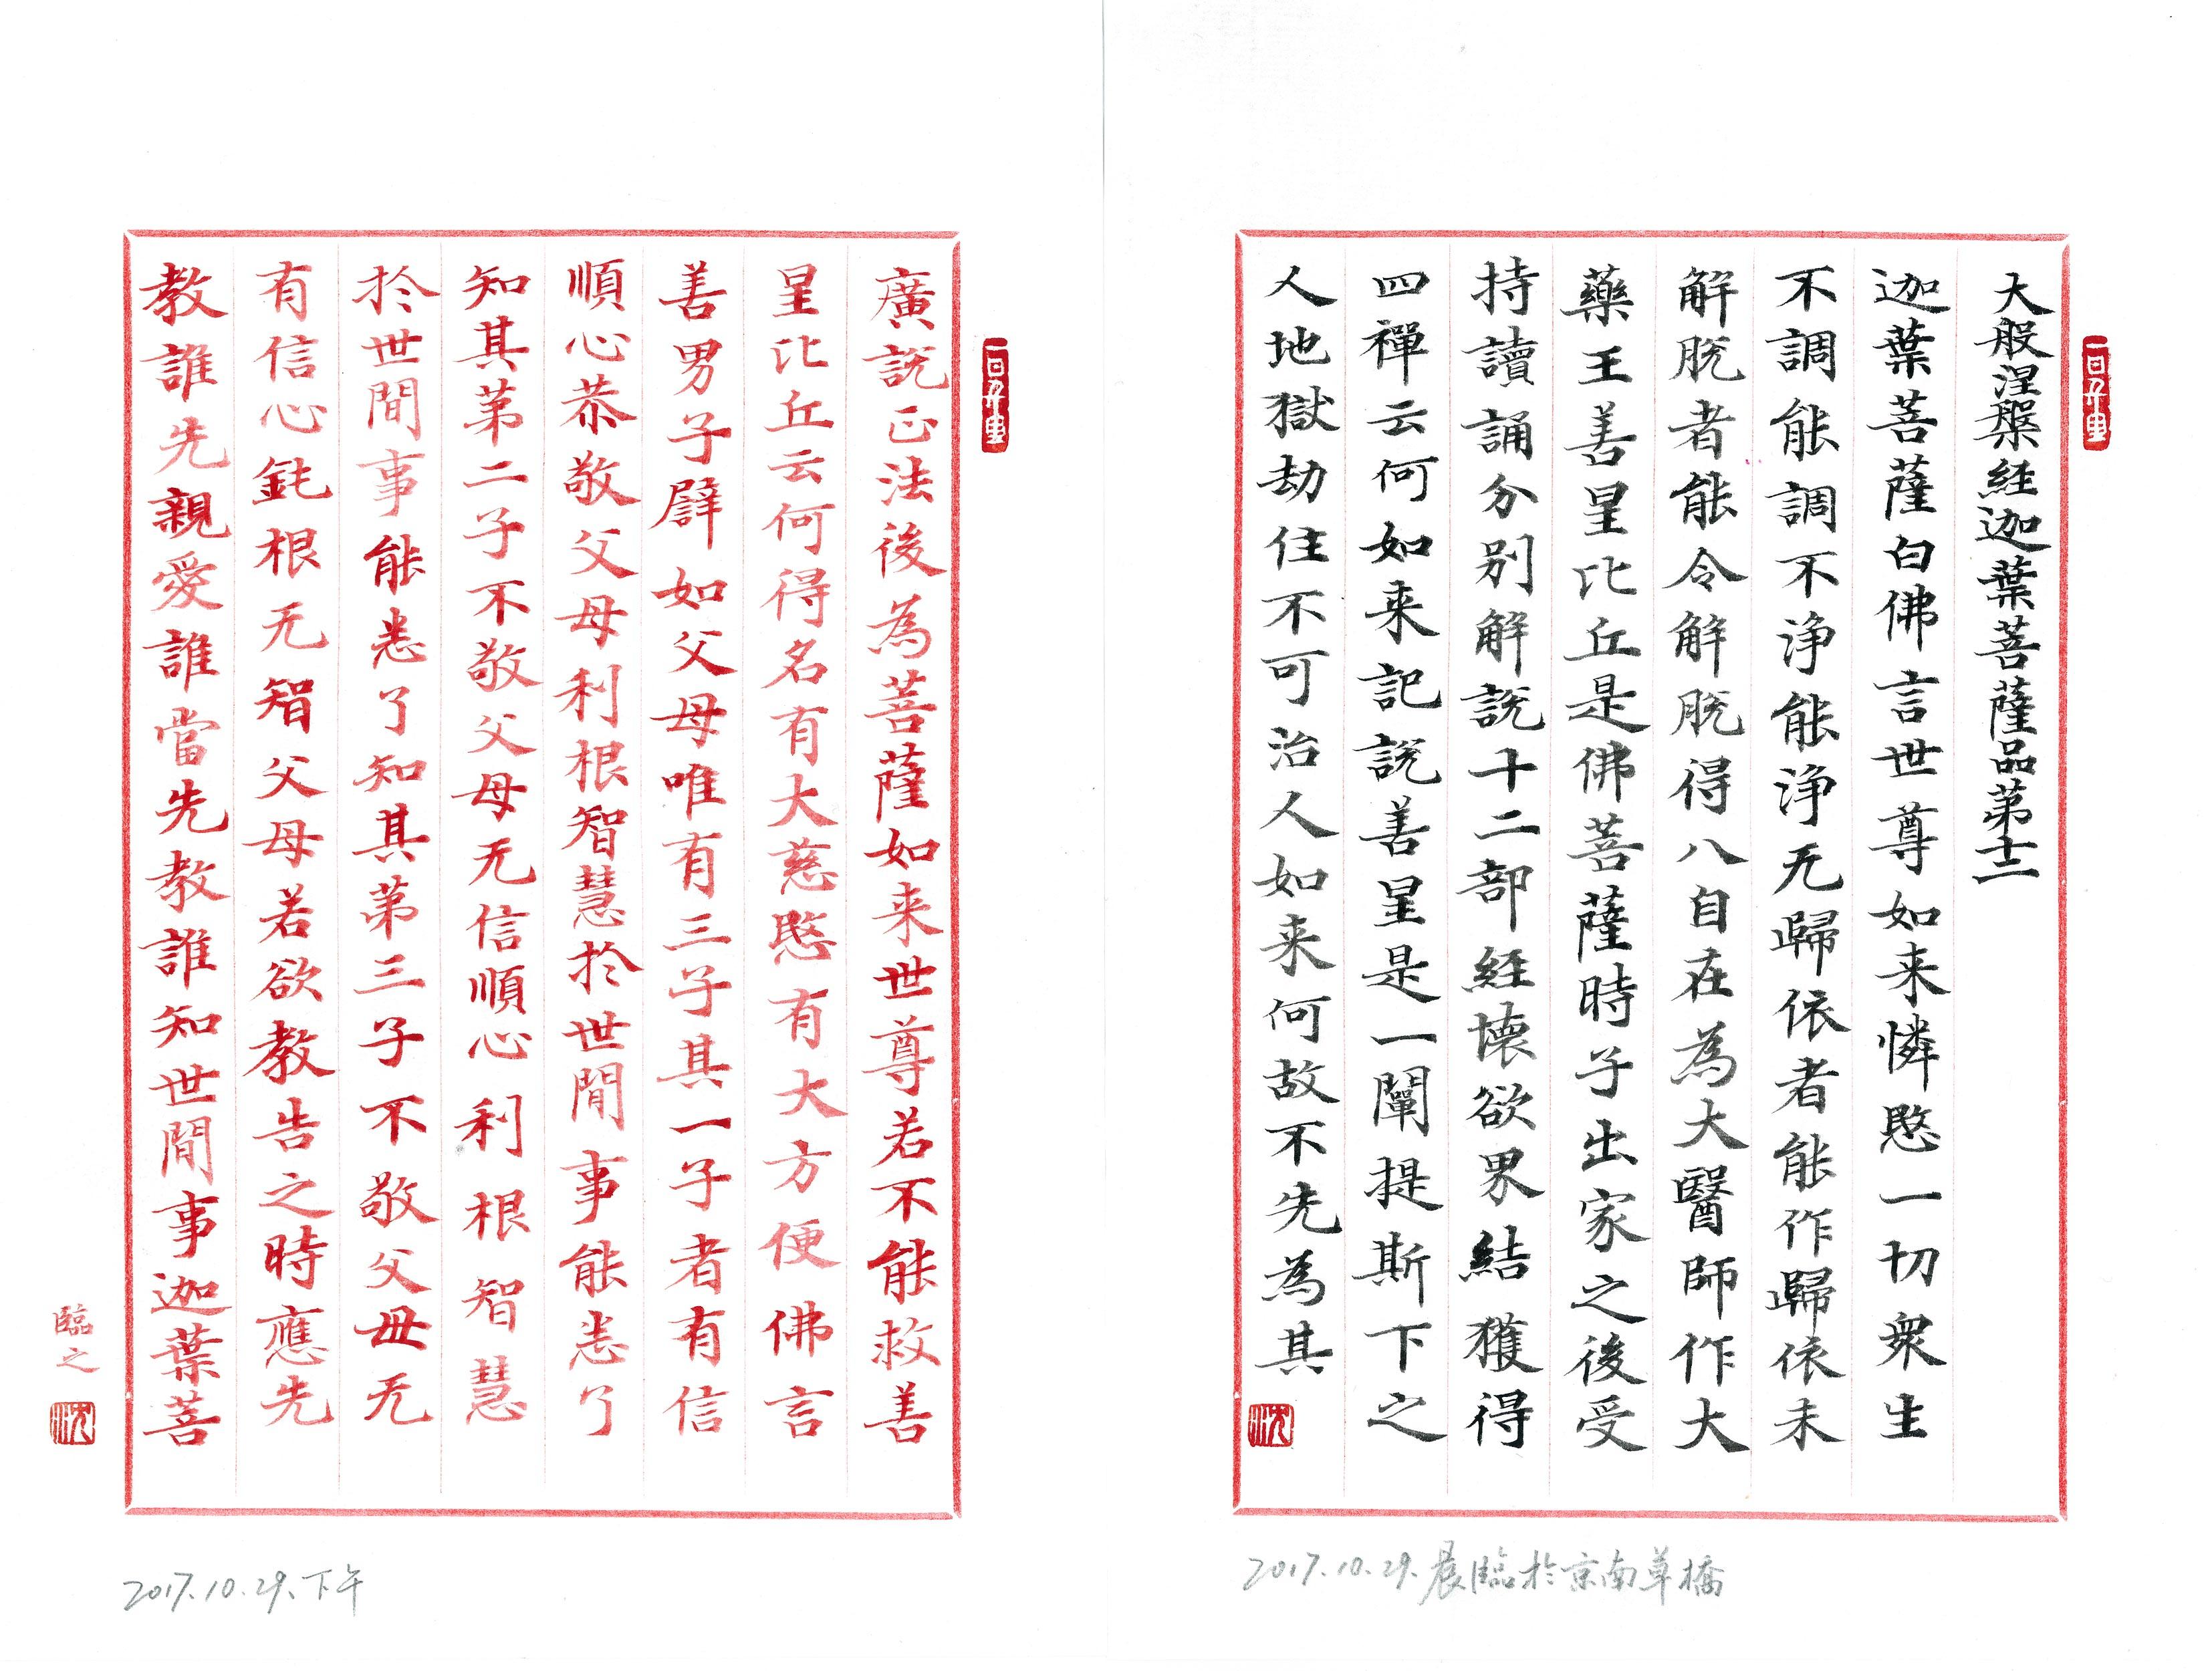 大般涅槃経迦葉菩薩品第十二
迦葉菩薩白佛言世尊如来憐愍一切衆生
不調能調不浄能浄无歸依者能作歸依未
解脱者能令解脱得八自在為大醫師作大
藥王善星比丘是佛菩薩時子出家之後受
持讀誦分别解説十二部経壊欲界結獲得
四禪云何如来記説善星是一闡提斯下之
人地獄劫住不可治人如来何故不先為其
沈
2017.10.29.晨臨於京南草橋
廣説正法後為菩薩如来世尊若不能救善
星比丘云何得名有大慈愍有大方便佛言
善男子辟如父母唯有三子其一子者有信
順心恭敬父母利根智慧於世間事能悉了
知其第二子不敬父母无信順心利根智慧
於世間事能悉了知其第三子不敬父母无
有信心鈍根无智父母若欲教告之時應先
教誰先親愛誰當先教誰知世間事迦葉菩
臨之
沈
2017.10.29.下午